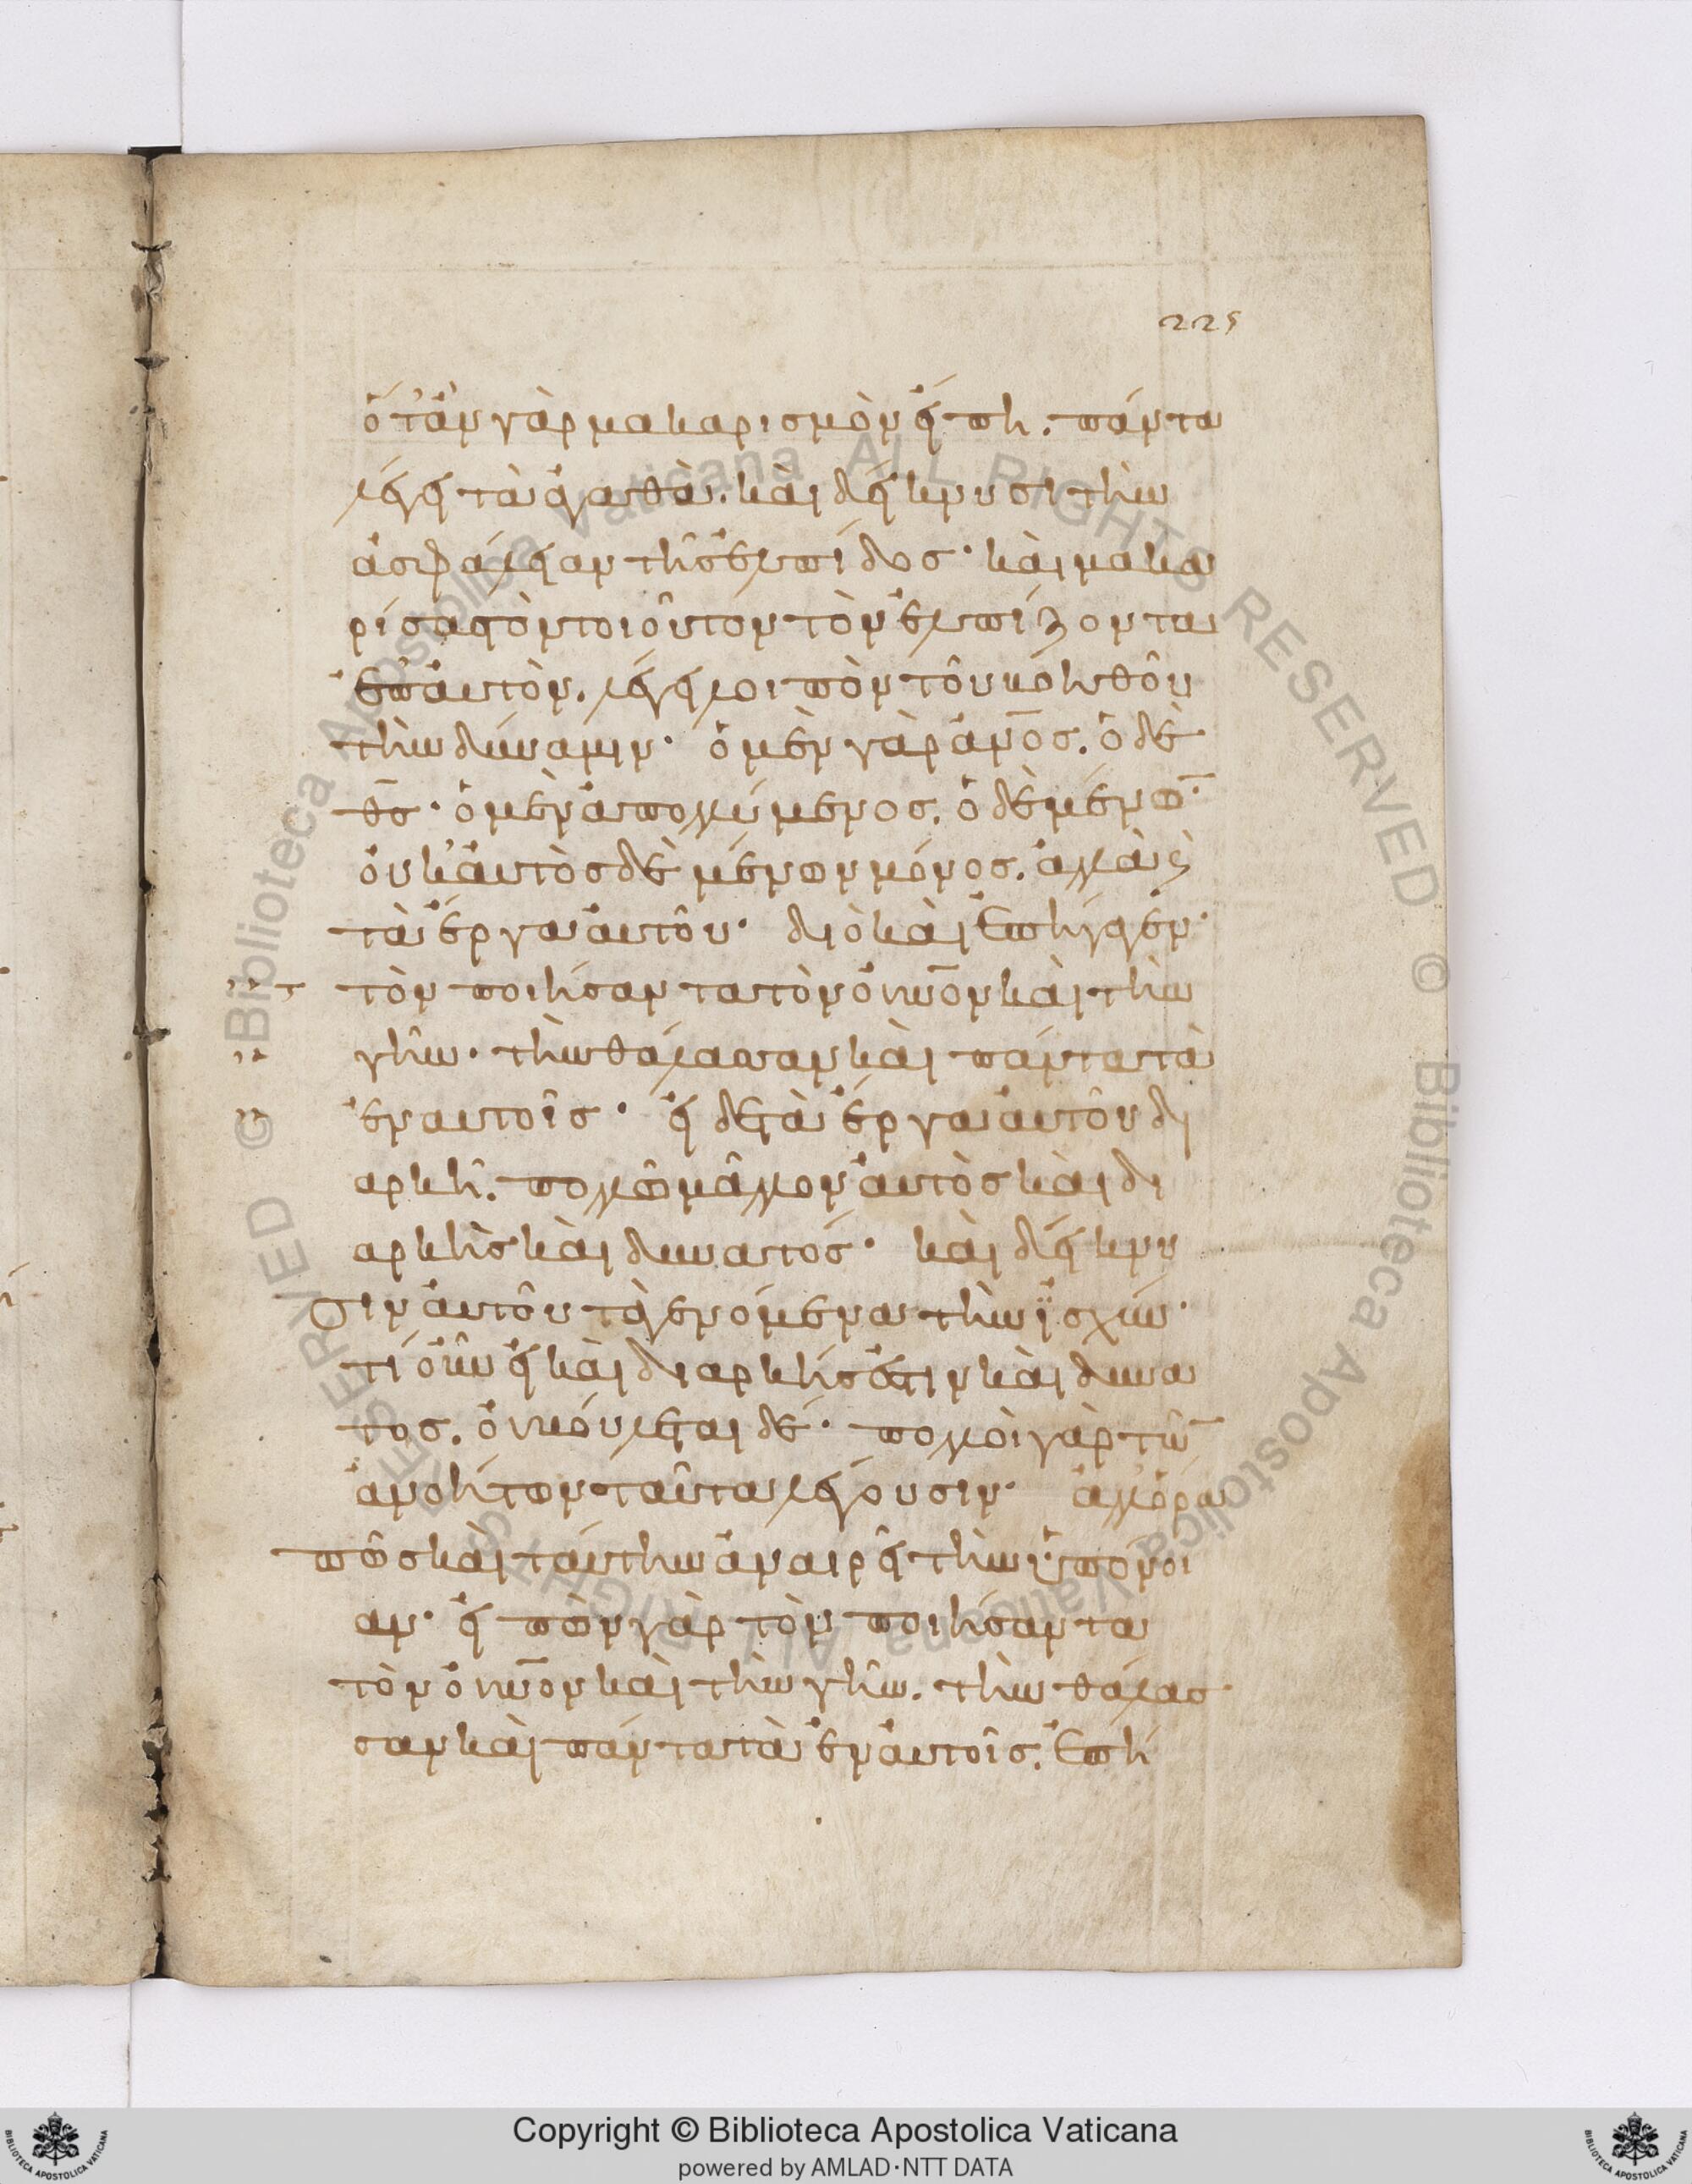 225
ὅτἂν γὰρ μακαρισμὸν εἴπη. πάντα
λέγει τὰ ἀγαθὰ. καὶ δείκνυσι τὴν
ἀσφάλειαν τῆς ἐλπίδος· καὶ μακα
ρίσας τὸν τοιοῦτον τὸν ἐλπίζοντα
ἐπ' αὐτὸν. λέγει λοιπὸν τοῦ βοηθοῦ
τὴν δύναμιν· ὁ μὲν γὰρ ἄνος. ὁ δὲ
θς· ὁ μὲν ἀπολλύμενος. ὁ δὲ μένω·
οὐκ αὐτὸς δὲ μένων μόνος. ἀλλὰ ϗ
τὰ ἔργα αὐτοῦ· διὸ καὶ ἐπήγαγεν·
τὸν ποιήσαντα τὸν οὐνον καὶ τὴν
γῆν· τὴν θάλασσαν καὶ πάντα τὰ
ἐν αὐτοῖς· εἰ δὲ τὰ ἔργα αὐτοῦ δι
αρκῆ. πολλῶ μᾶλλον αὐτὸς καὶ δι
αρκὴς καὶ δυνατός· καὶ δείκνυ
σιν αὐτοῦ τὰ γενόμενα τὴν ἰσχύν·
τί οὖν εἰ καὶ διαρκής ἐστιν καὶ δυνα
τος. οὐ βούλεται δέ· πολλοὶ γὰρ τῶ
ἀνοήτων ταῦτα λέγουσιν· ἀλλ' ὅρα
πῶς καὶ ταύτην ἀναιρεῖ τὴν ὑπόνοι
αν· εἰπὼν γὰρ τὸν ποιήσαντα
τὸν οὐνον καὶ τὴν γῆν. τὴν θάλασ
σαν καὶ πάντα τὰ ἐν αὐτοῖς. ἐπή
Copyright © Biblioteca Apostolica Vaticana
powered by AMLAD·NTT DATA